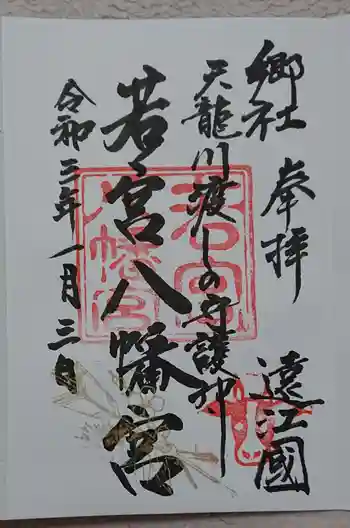 郷社 奉拝 遠江國
天龍川渡しの守護神
若宮八幡宮
令和三年一月三日
若宮八幡宮